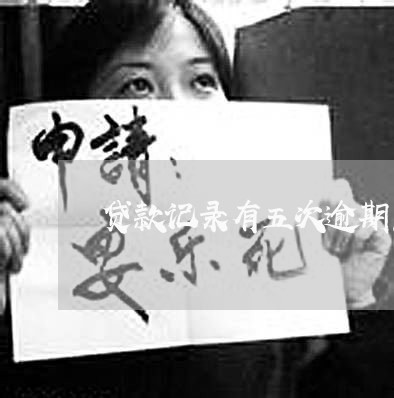 申請：
贷款记录有五次逾期
安乐死